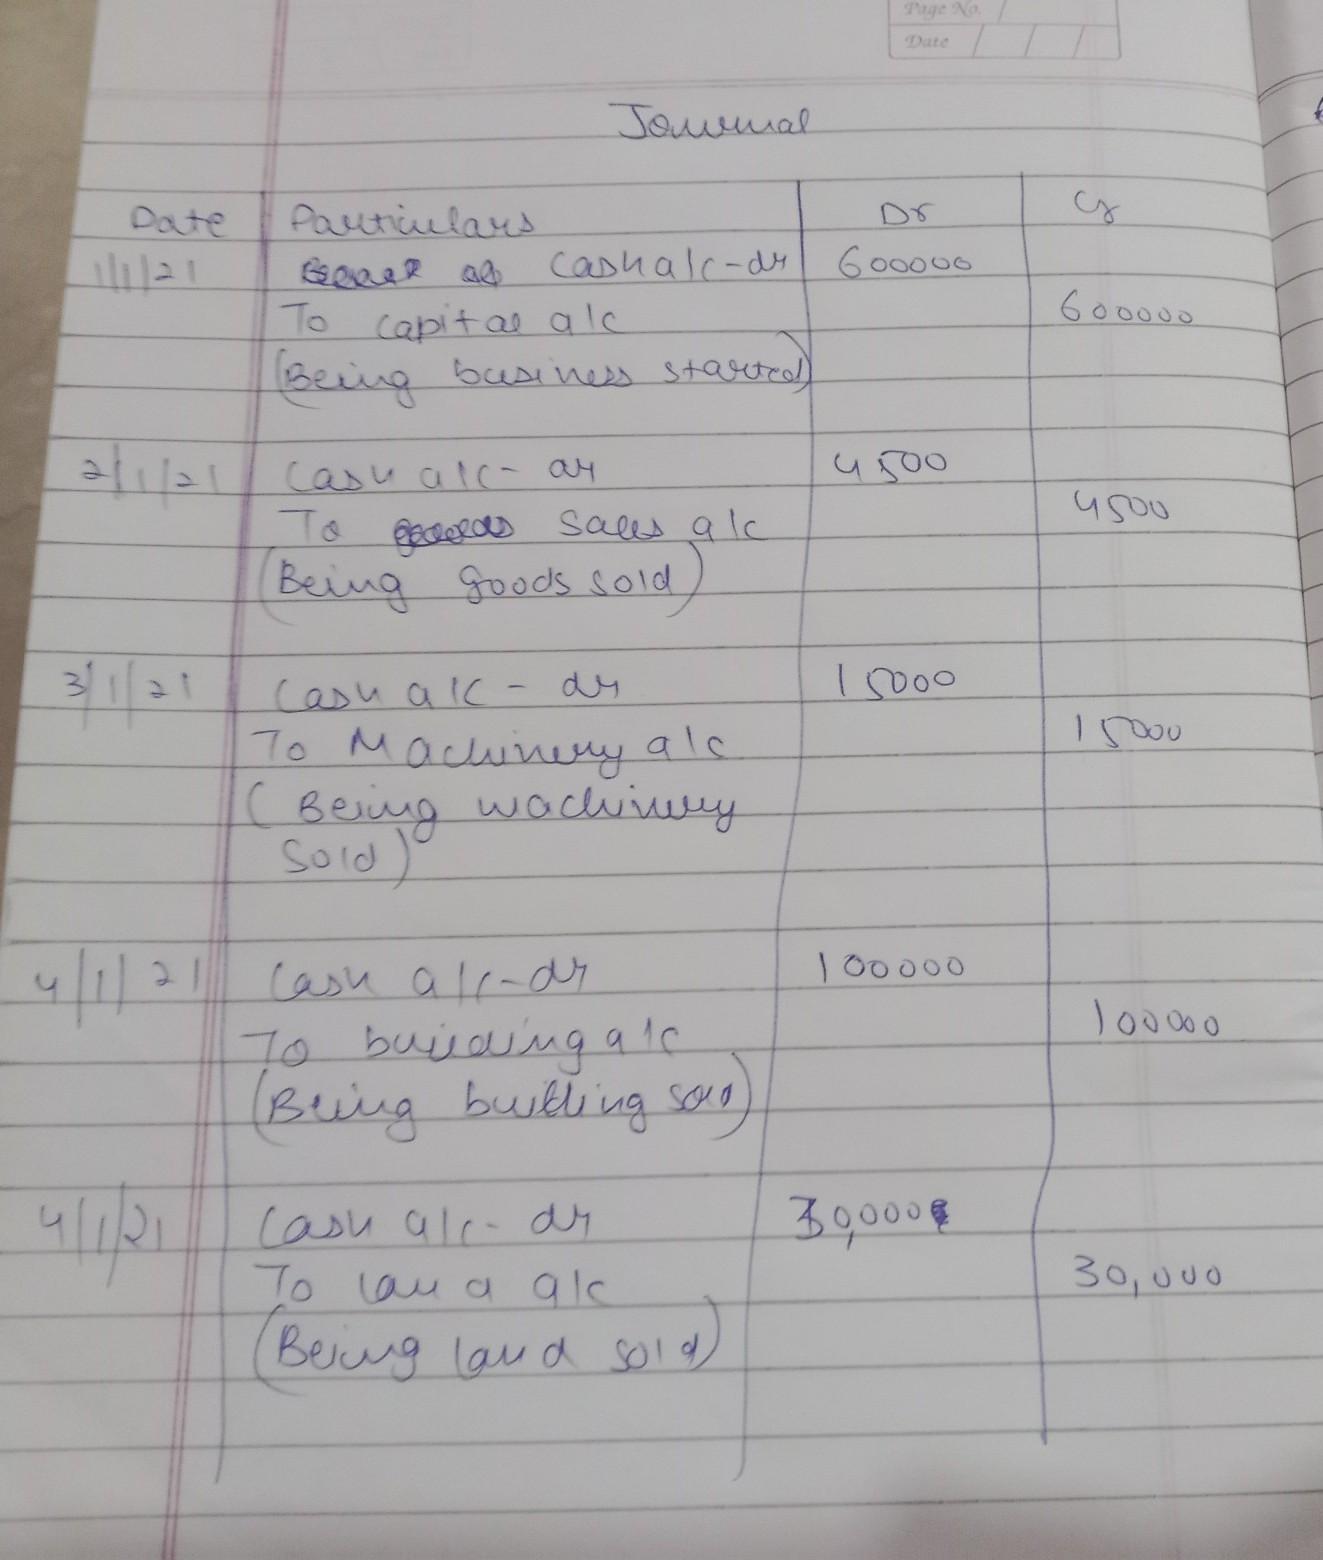 Page No.
Date
Journal
Date Particulars Dr Cr
1/1/21 Cash a/c - dr 600000
To capital a/c 600000
(Being business started)
2/1/21 Cash a/c - dr 4500
To Sales a/c 4500
(Being goods sold)
3/1/21 Cash a/c - dr 15000
To Machinery a/c 15000
(Being machinery
Sold)
4/1/21 Cash a/c - dr 100000
To building a/c 100000
(Being building sold)
4/1/21 Cash a/c - dr 30,000
To land a/c 30,000
(Being land sold)